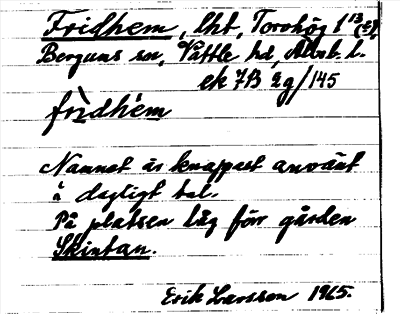 Fridhem, lht, Torshög 1¹³ (2)
Bergums sn, Vättle hd, Älvsb. l.
ek 7B 2g/145
frìdhém
Namnet är knappast använt
i dagligt tal.
På platsen låg förr gården
Skintan.
Erik Larsson 1965.